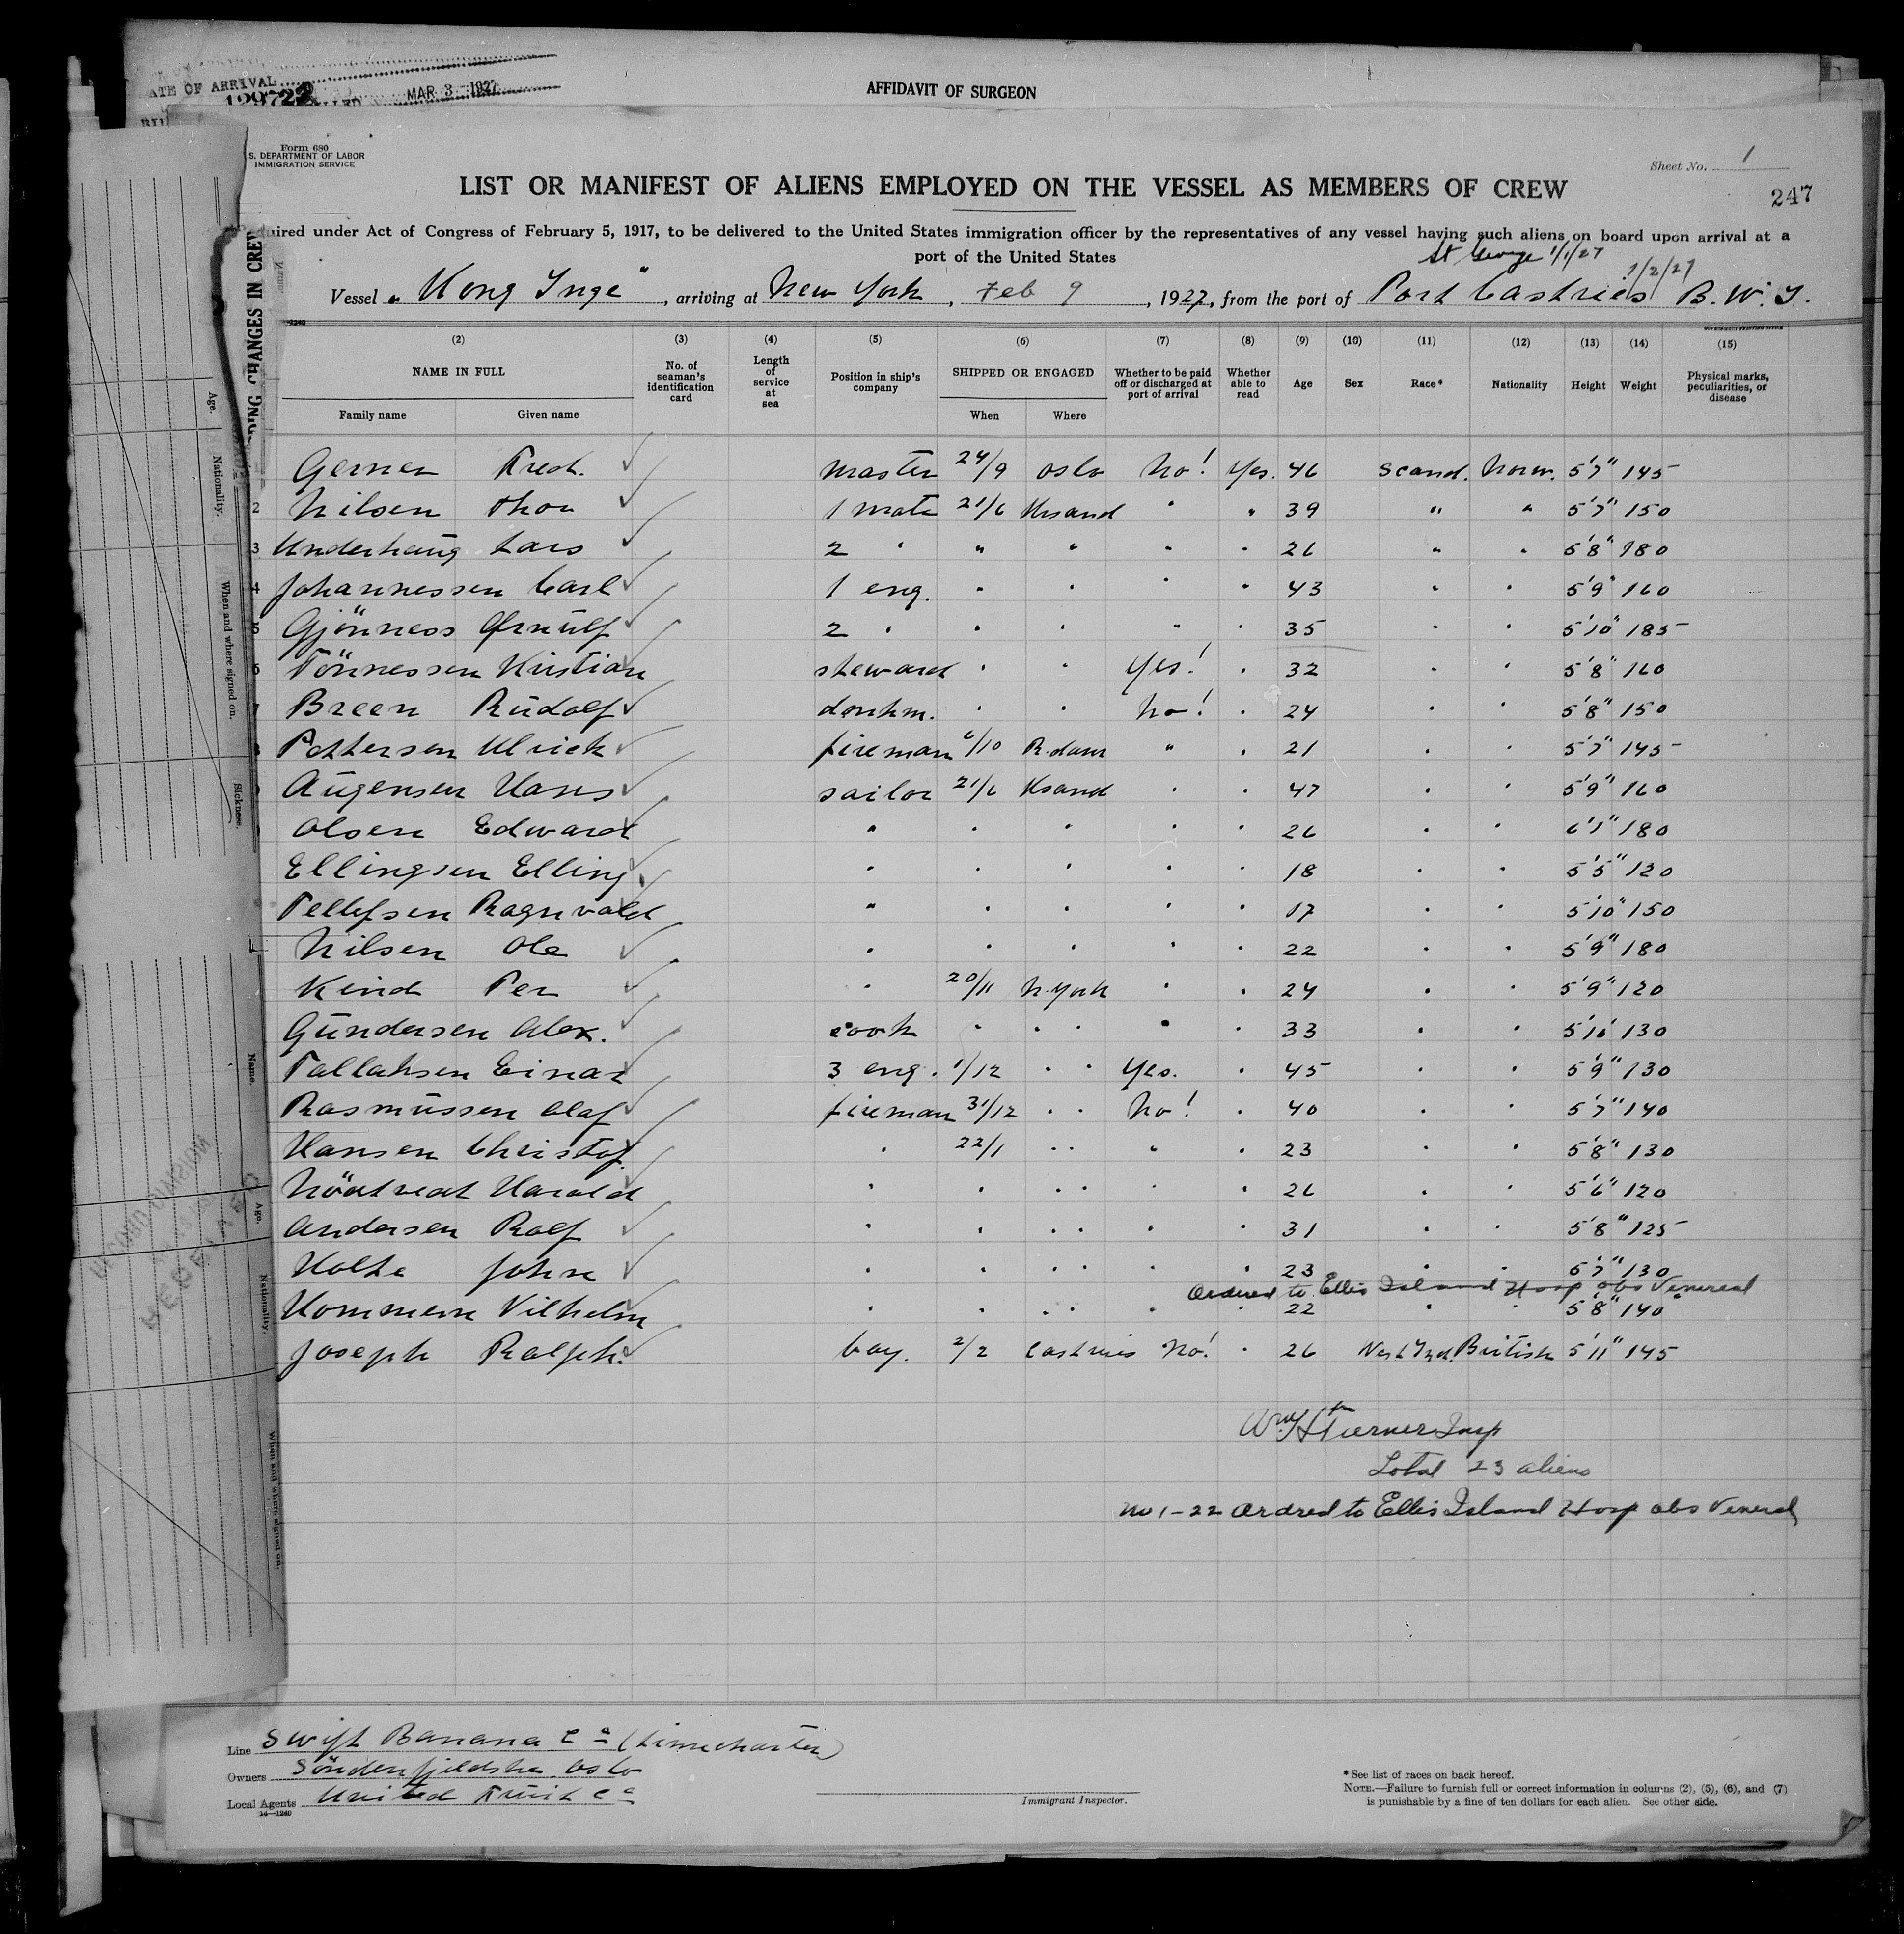 DATE OF ARRIVAL
199722 MAR 3 1927
AFFIDAVIT OF SURGEON
Form 680
S. DEPARTMENT OF LABOR
IMMIGRATION SERVICE
Sheet No. 1
247
LIST OR MANIFEST OF ALIENS EMPLOYED ON THE VESSEL AS MEMBERS OF CREW
Required under Act of Congress of February 5, 1917, to be delivered to the United States immigration officer by the representatives of any vessel having such aliens on board upon arrival at a
port of the United States
St George 1/1/27
1/2/27
Vessel "Kong Inge", arriving at New York, Feb 9, 1927, from the port of Port Castries B.W.I.
(2) (3) (4) (5) (6) (7) (8) (9) (10) (11) (12) (13) (14) (15)
NAME IN FULL
Family name Given name
No. of seaman's identification card
Length of service at sea
Position in ship's company
SHIPPED OR ENGAGED
When Where
Whether to be paid off or discharged at port of arrival
Whether able to read
Age Sex Race* Nationality Height Weight
Physical marks, peculiarities, or disease
Gerner Fredr. ✓ master 24/9 Oslo No! Yes. 46 Scand. Norw. 5'7" 145
2 Nilsen Thor ✓ 1 mate 21/6 Krsand " " 39 " " 5'7" 150
3 Underhaug Lars ✓ 2 " " " " " 26 " " 5'8" 180
4 Johannessen Carl ✓ 1 eng. " " " " 43 " " 5'9" 160
5 Gjönness Arnulf ✓ 2 " " " " " 35 " " 5'10" 185
6 Tönnessen Kristian steward " " Yes! " 32 " " 5'8" 160
7 Breen Rudolf ✓ donkm. " " No! " 24 " " 5'8" 150
8 Pettersen Ulrick ✓ fireman 6/10 R.dam " " 21 " " 5'7" 145
Augensen Hans ✓ sailor 21/6 Krsand " " 47 " " 5'9" 160
Olsen Edward " " " " " 26 " " 6'1" 180
Ellingsen Elling " " " " " 18 " " 5'5" 120
Tellefsen Ragnvald " " " " " 17 " " 5'10" 150
Nilsen Ole ✓ " " " " " 22 " " 5'9" 180
Kind Per ✓ " 20/11 N.York " " 24 " " 5'9" 120
Gundersen Alex. ✓ cook " " " " " 33 " " 5'10" 130
Tallaksen Einar 3 eng. 1/12 " " Yes. " 45 " " 5'9" 130
Rasmussen Olaf ✓ fireman 31/12 " " No! " 40 " " 5'7" 140
Hansen Christof. " 22/1 " " " " 23 " " 5'8" 130
Harald " " " " " " 26 " " 5'6" 120
Andersen Rolf ✓ " " " " " " 31 " " 5'8" 125
Holte John ✓ " " " " " " 23 " " 5'7" 130
Ordered to Ellis Island Hosp obs Venereal
Hommem Vilhelm " " " " " " 22 " " 5'8" 140
Joseph Ralph. ✓ boy. 2/2 Castries No! " 26 West Ind. British 5'11" 145
Wm H Turner Insp
Total 23 aliens
No 1-22 Ordred to Ellis Island Hosp obs Veneral
Line Swift Banana Co (timecharter)
Owners Söndenfjeldske Oslo
Local Agents United Fruit Co
14—1240
Immigrant Inspector.
*See list of races on back hereof.
NOTE.—Failure to furnish full or correct information in columns (2), (5), (6), and (7)
is punishable by a fine of ten dollars for each alien. See other side.
CHANGES IN CREW
Age.
Nationality.
When and where signed on.
Sickness.
Name.
Age.
Nationality.
When and where signed on.